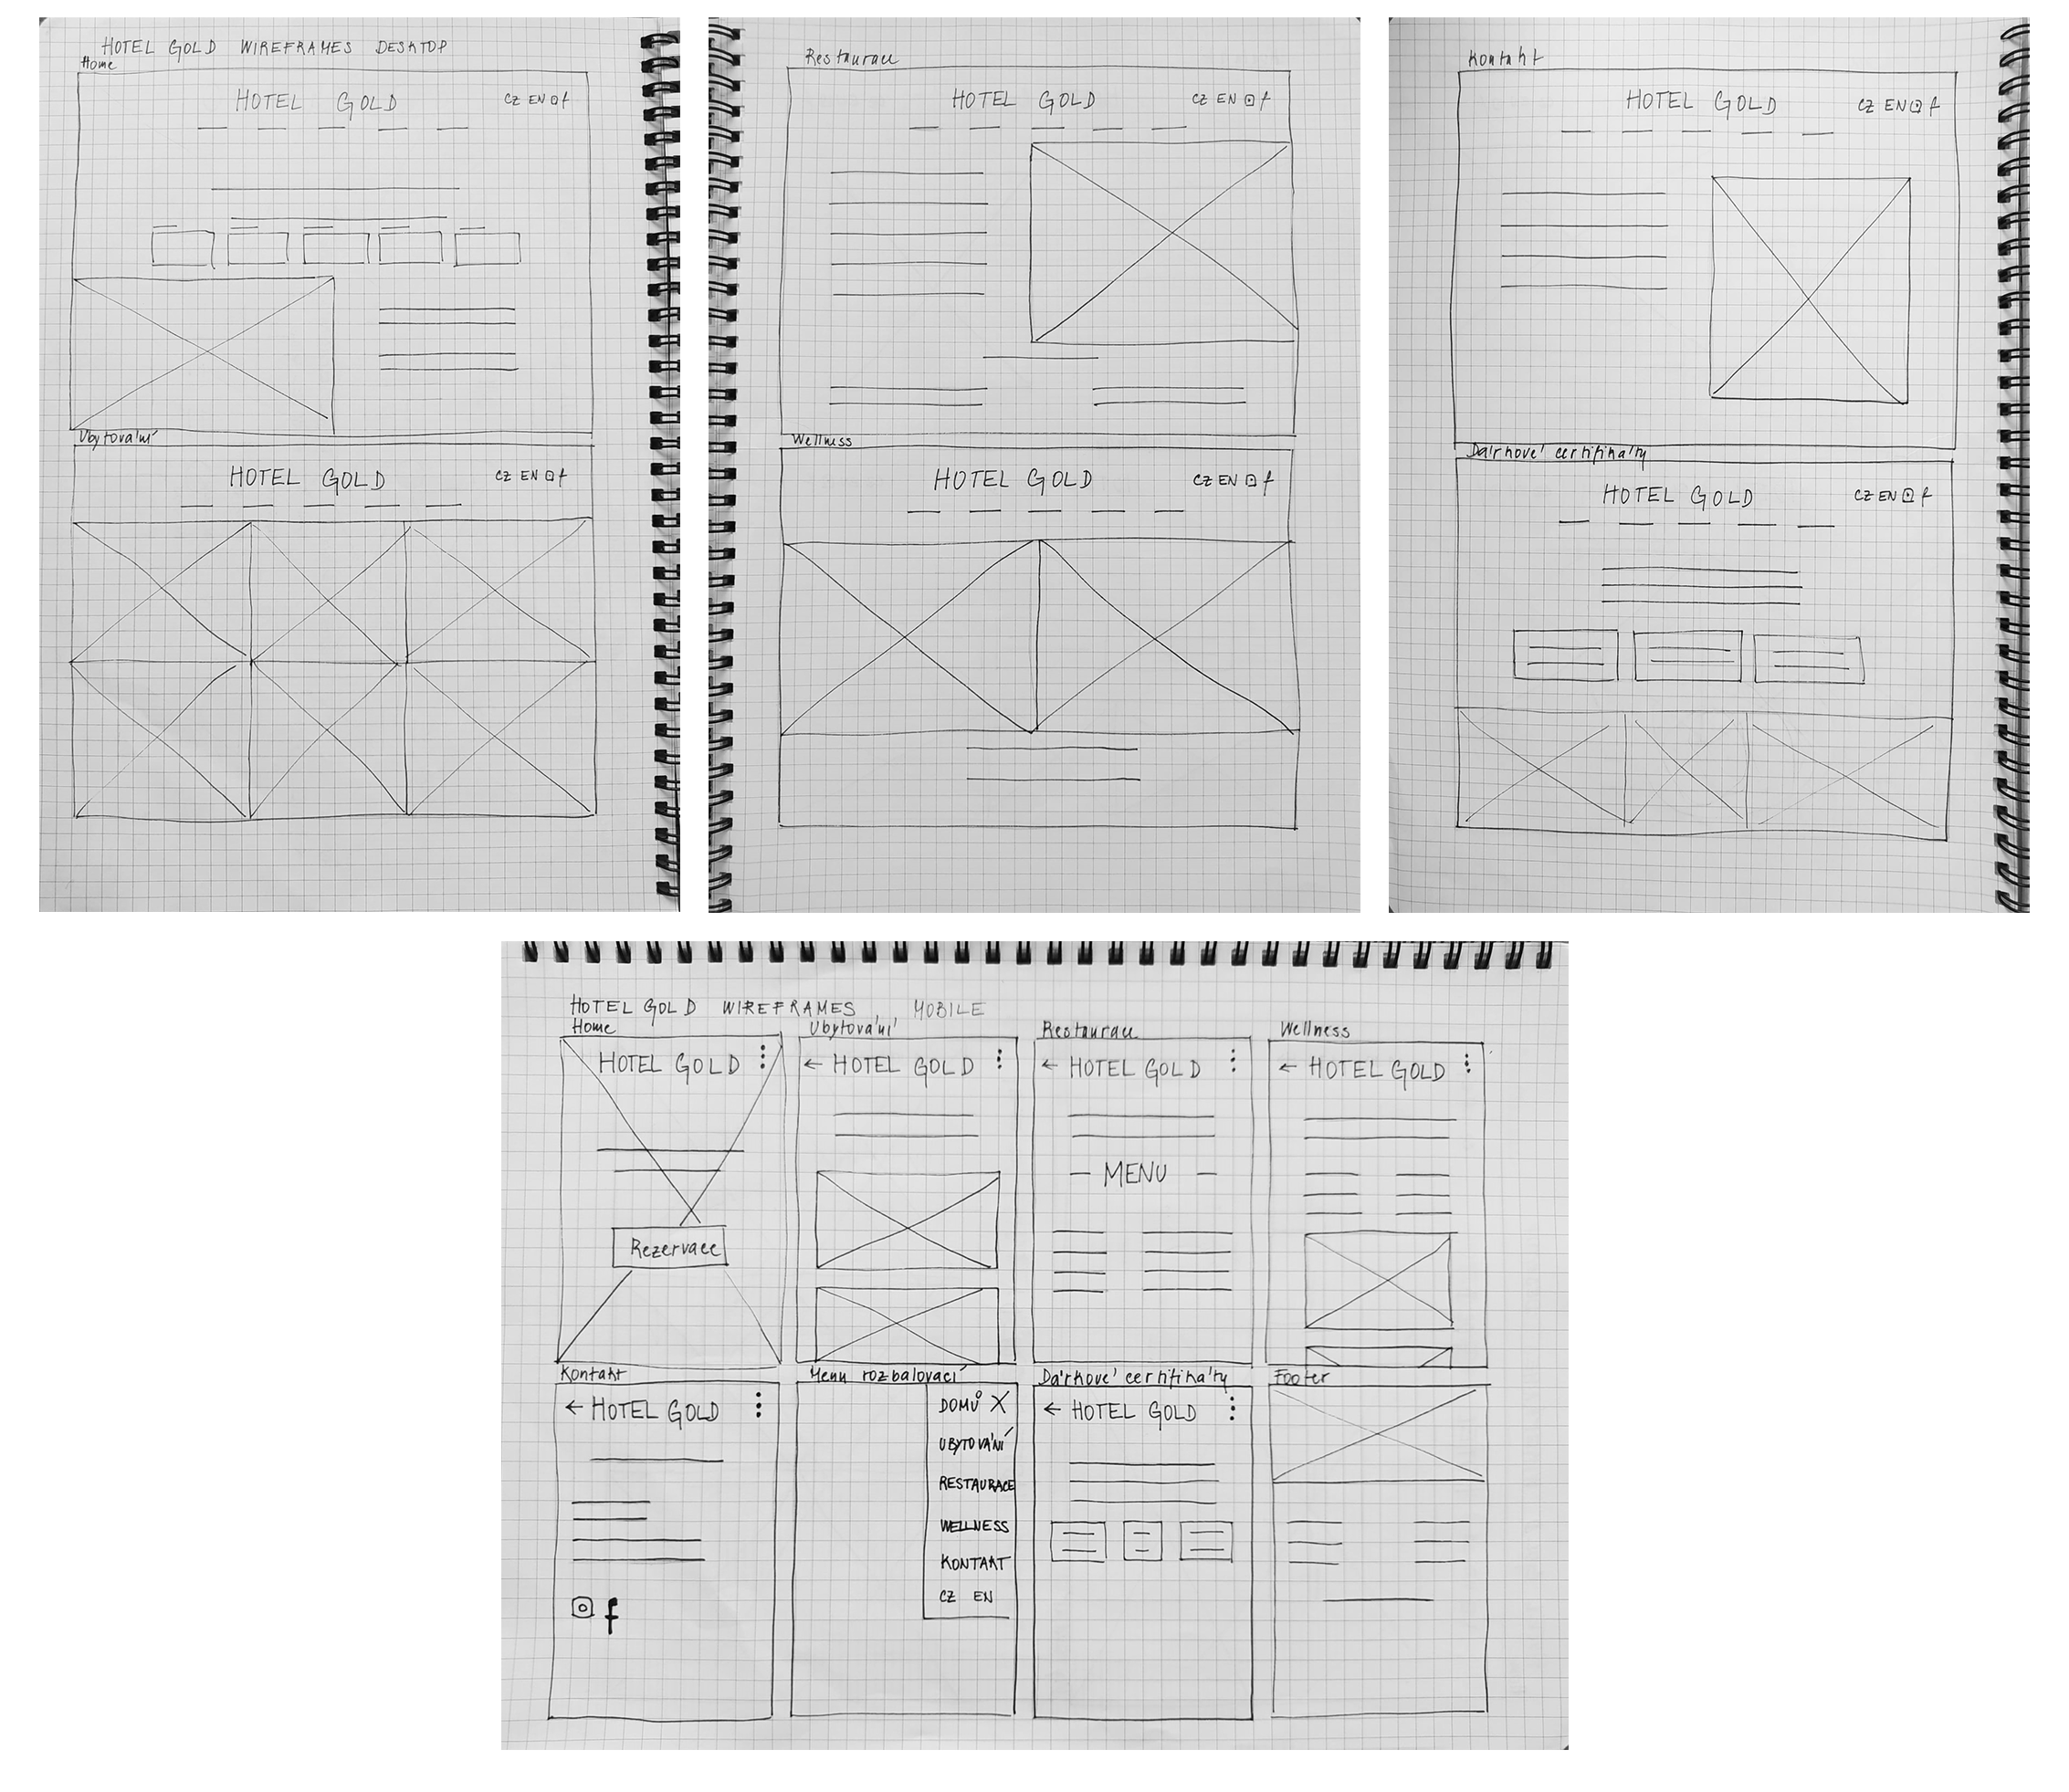 HOTEL GOLD WIREFRAMES DESKTOP
Home
HOTEL GOLD CZ EN f
Ubytování
HOTEL GOLD CZ EN f
Restaurace
HOTEL GOLD CZ EN f
Wellness
HOTEL GOLD CZ EN f
Kontakt
HOTEL GOLD CZ EN f
Dárkové certifikáty
HOTEL GOLD CZ EN f
HOTEL GOLD WIREFRAMES, MOBILE
Home
HOTEL GOLD
Rezervace
Ubytování
← HOTEL GOLD
Restaurace
← HOTEL GOLD
— MENU —
Wellness
← HOTEL GOLD
Kontakt
← HOTEL GOLD
f
Menu rozbalovací
DOMŮ X
UBYTOVÁNÍ
RESTAURACE
WELLNESS
KONTAKT
CZ EN
Dárkové certifikáty
← HOTEL GOLD
Footer